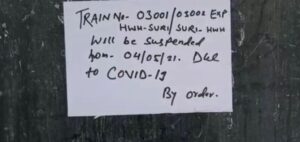 TRAIN No- 03001/03002 Exp
HWH-SURI/SURI-HWH
Will be suspended
from- 04/05/21. Due
to COVID-19
By order.